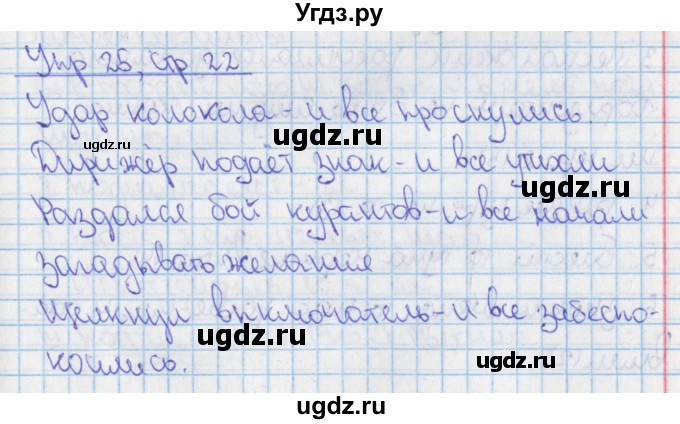 Угдз.ру
Упр 25, стр 22
Удар колокола - и все проснулись.
ugdz.ru ugdz.ru
Дирижёр подаёт знак - и все утихли
ugdz.ru ugdz.ru
Раздался бой курантов - и все начали
загадывать желания
ugdz.ru
Щелкнул выключатель - и все забеспо-
ugdz.ru ugdz.ru
коились.
ugdz.ru
ugdz.ru